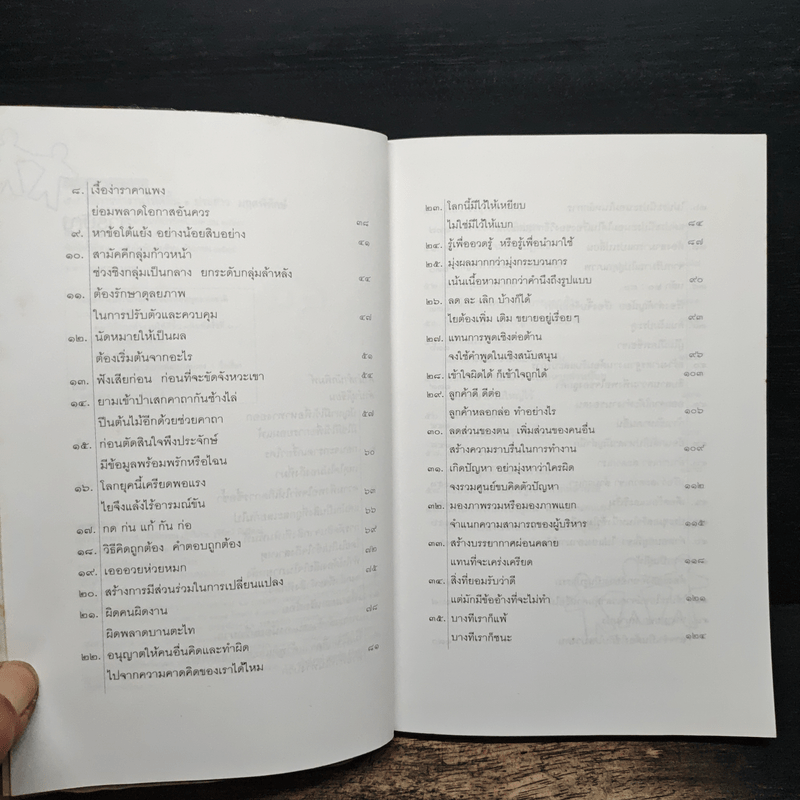 ๘. เงื้อง่าราคาแพง
ย่อมพลาดโอกาสอันควร ๓๘
๙. หาข้อโต้แย้ง อย่างน้อยสิบอย่าง ๔๑
๑๐. สามัคคีกลุ่มก้าวหน้า
ช่วงชิงกลุ่มเป็นกลาง ยกระดับกลุ่มล้าหลัง ๔๔
๑๑. ต้องรักษาดุลยภาพ
ในการปรับตัวและควบคุม ๔๗
๑๒. นัดหมายให้เป็นผล
ต้องเริ่มต้นจากอะไร ๕๑
๑๓. ฟังเสียก่อน ก่อนที่จะขัดจังหวะเขา ๕๔
๑๔. ยามเข้าป่าเสกคาถากันช้างไล่
ปีนต้นไม้อีกด้วยช่วยคาถา ๕๗
๑๕. ก่อนตัดสินใจพึงประจักษ์
มีข้อมูลพร้อมพรักหรือไฉน ๖๐
๑๖. โลกยุคนี้เครียดพอแรง
ไยจึงแล้งไร้อารมณ์ขัน ๖๓
๑๗. กด ก่น แก้ กัน ก่อ ๖๖
๑๘. วิธีคิดถูกต้อง คำตอบถูกต้อง ๖๙
๑๙. เออออวยห่วยหมก ๗๒
๒๐. สร้างการมีส่วนร่วมในการเปลี่ยนแปลง ๗๕
๒๑. ผิดคนผิดงาน
ผิดพลาดบานตะไท ๗๘
๒๒. อนุญาตให้คนอื่นคิดและทำผิด
ไปจากความคาดคิดของเราได้ไหม ๘๑
๒๓. โลกนี้มีไว้ให้เหยียบ
ไม่ใช่มีไว้ให้แบก ๘๔
๒๔. รู้เพื่ออวดรู้ หรือรู้เพื่อนำมาใช้ ๘๗
๒๕. มุ่งผลมากกว่ามุ่งกระบวนการ
เน้นเนื้อหามากกว่าคำนึงถึงรูปแบบ ๙๐
๒๖. ลด ละ เลิก บ้างก็ได้
ใยต้องเพิ่ม เติม ขยายอยู่เรื่อยๆ ๙๓
๒๗. แทนการพูดเชิงต่อต้าน
จงใช้คำพูดในเชิงสนับสนุน ๙๖
๒๘. เข้าใจผิดได้ ก็เข้าใจถูกได้ ๑๐๓
๒๙. ลูกค้าดี ดีต่อ
ลูกค้าหลอกล่อ ทำอย่างไร ๑๐๖
๓๐. ลดส่วนของตน เพิ่มส่วนของคนอื่น
สร้างความราบรื่นในการทำงาน ๑๐๙
๓๑. เกิดปัญหา อย่ามุ่งหาว่าใครผิด
จงรวมศูนย์ขบคิดตัวปัญหา ๑๑๒
๓๒. มองภาพรวมหรือมองภาพแยก
จำแนกความสามารถของผู้บริหาร ๑๑๕
๓๓. สร้างบรรยากาศผ่อนคลาย
แทนที่จะเคร่งเครียด ๑๑๘
๓๔. สิ่งที่ยอมรับว่าดี
แต่มักมีข้ออ้างที่จะไม่ทำ ๑๒๑
๓๕. บางทีเราก็แพ้
บางทีเราก็ชนะ ๑๒๔